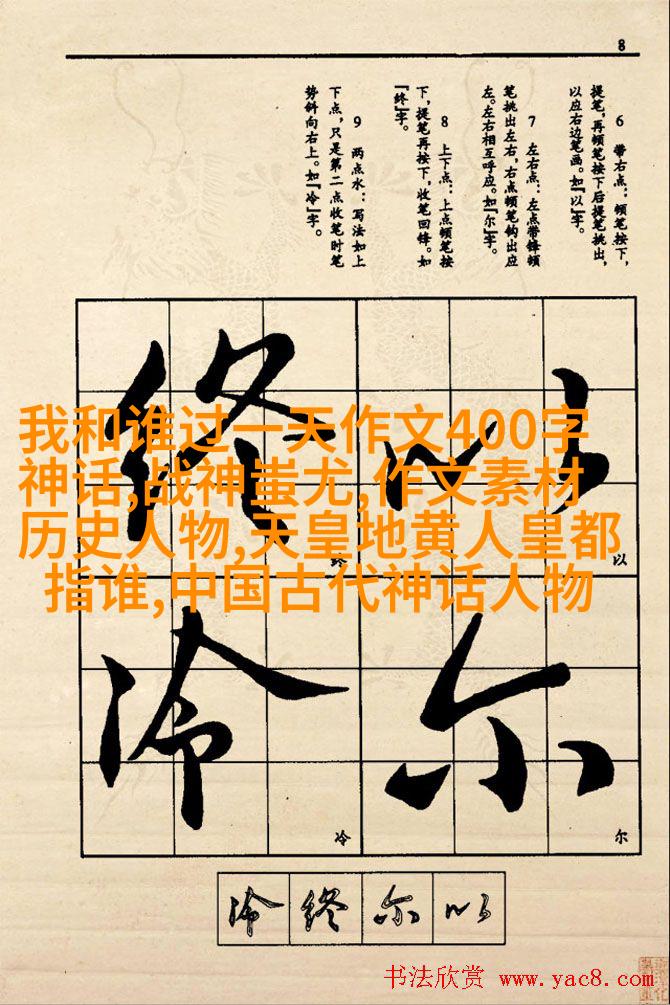 8
6 带右点：顿笔按下，
提笔，再顿笔按下后提笔挑出，
以应右边笔画。如『以』字。
7 左右点：左点带锋顿
笔挑出左右，右点顿笔钩出应
左。左右相互呼应。如『尔』字。
8 上下点：上点顿笔按
下，提笔再按下，收笔回锋。如
『终』字。
9 两点水：写法如上
下点，只是第二点收笔时笔
势斜向右上。如『冷』字。
以
尔
终
冷
以
尔
终
冷
我和谁过一天作文400字
神话,战神蚩尤,作文素材
历史人物,天皇地黄人皇都
指谁,中国古代神话人物
冷 终 尔 以
书法欣赏 www.yac8.com